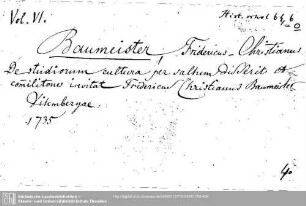 Vol. VI.
Hist. orient 61, 6
Baumeister, Fridericus Christianus
De studiorum cultura per saltum disserit et
comilitones invitat Fridericus Christianus Baumeister
Vitembergae,
1735
4o
Sächsische Landesbibliothek -
Staats- und Universitätsbibliothek Dresden